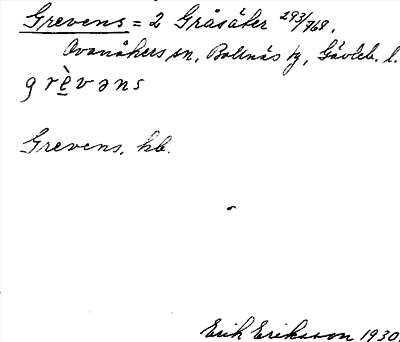 Grevens = 2 Gråsäker 293/768.
Ovanåkers sn, Bollnäs tg, Gävleb. l.
grè̱vəns
Grevens, kb.
Erik Eriksson 1930.